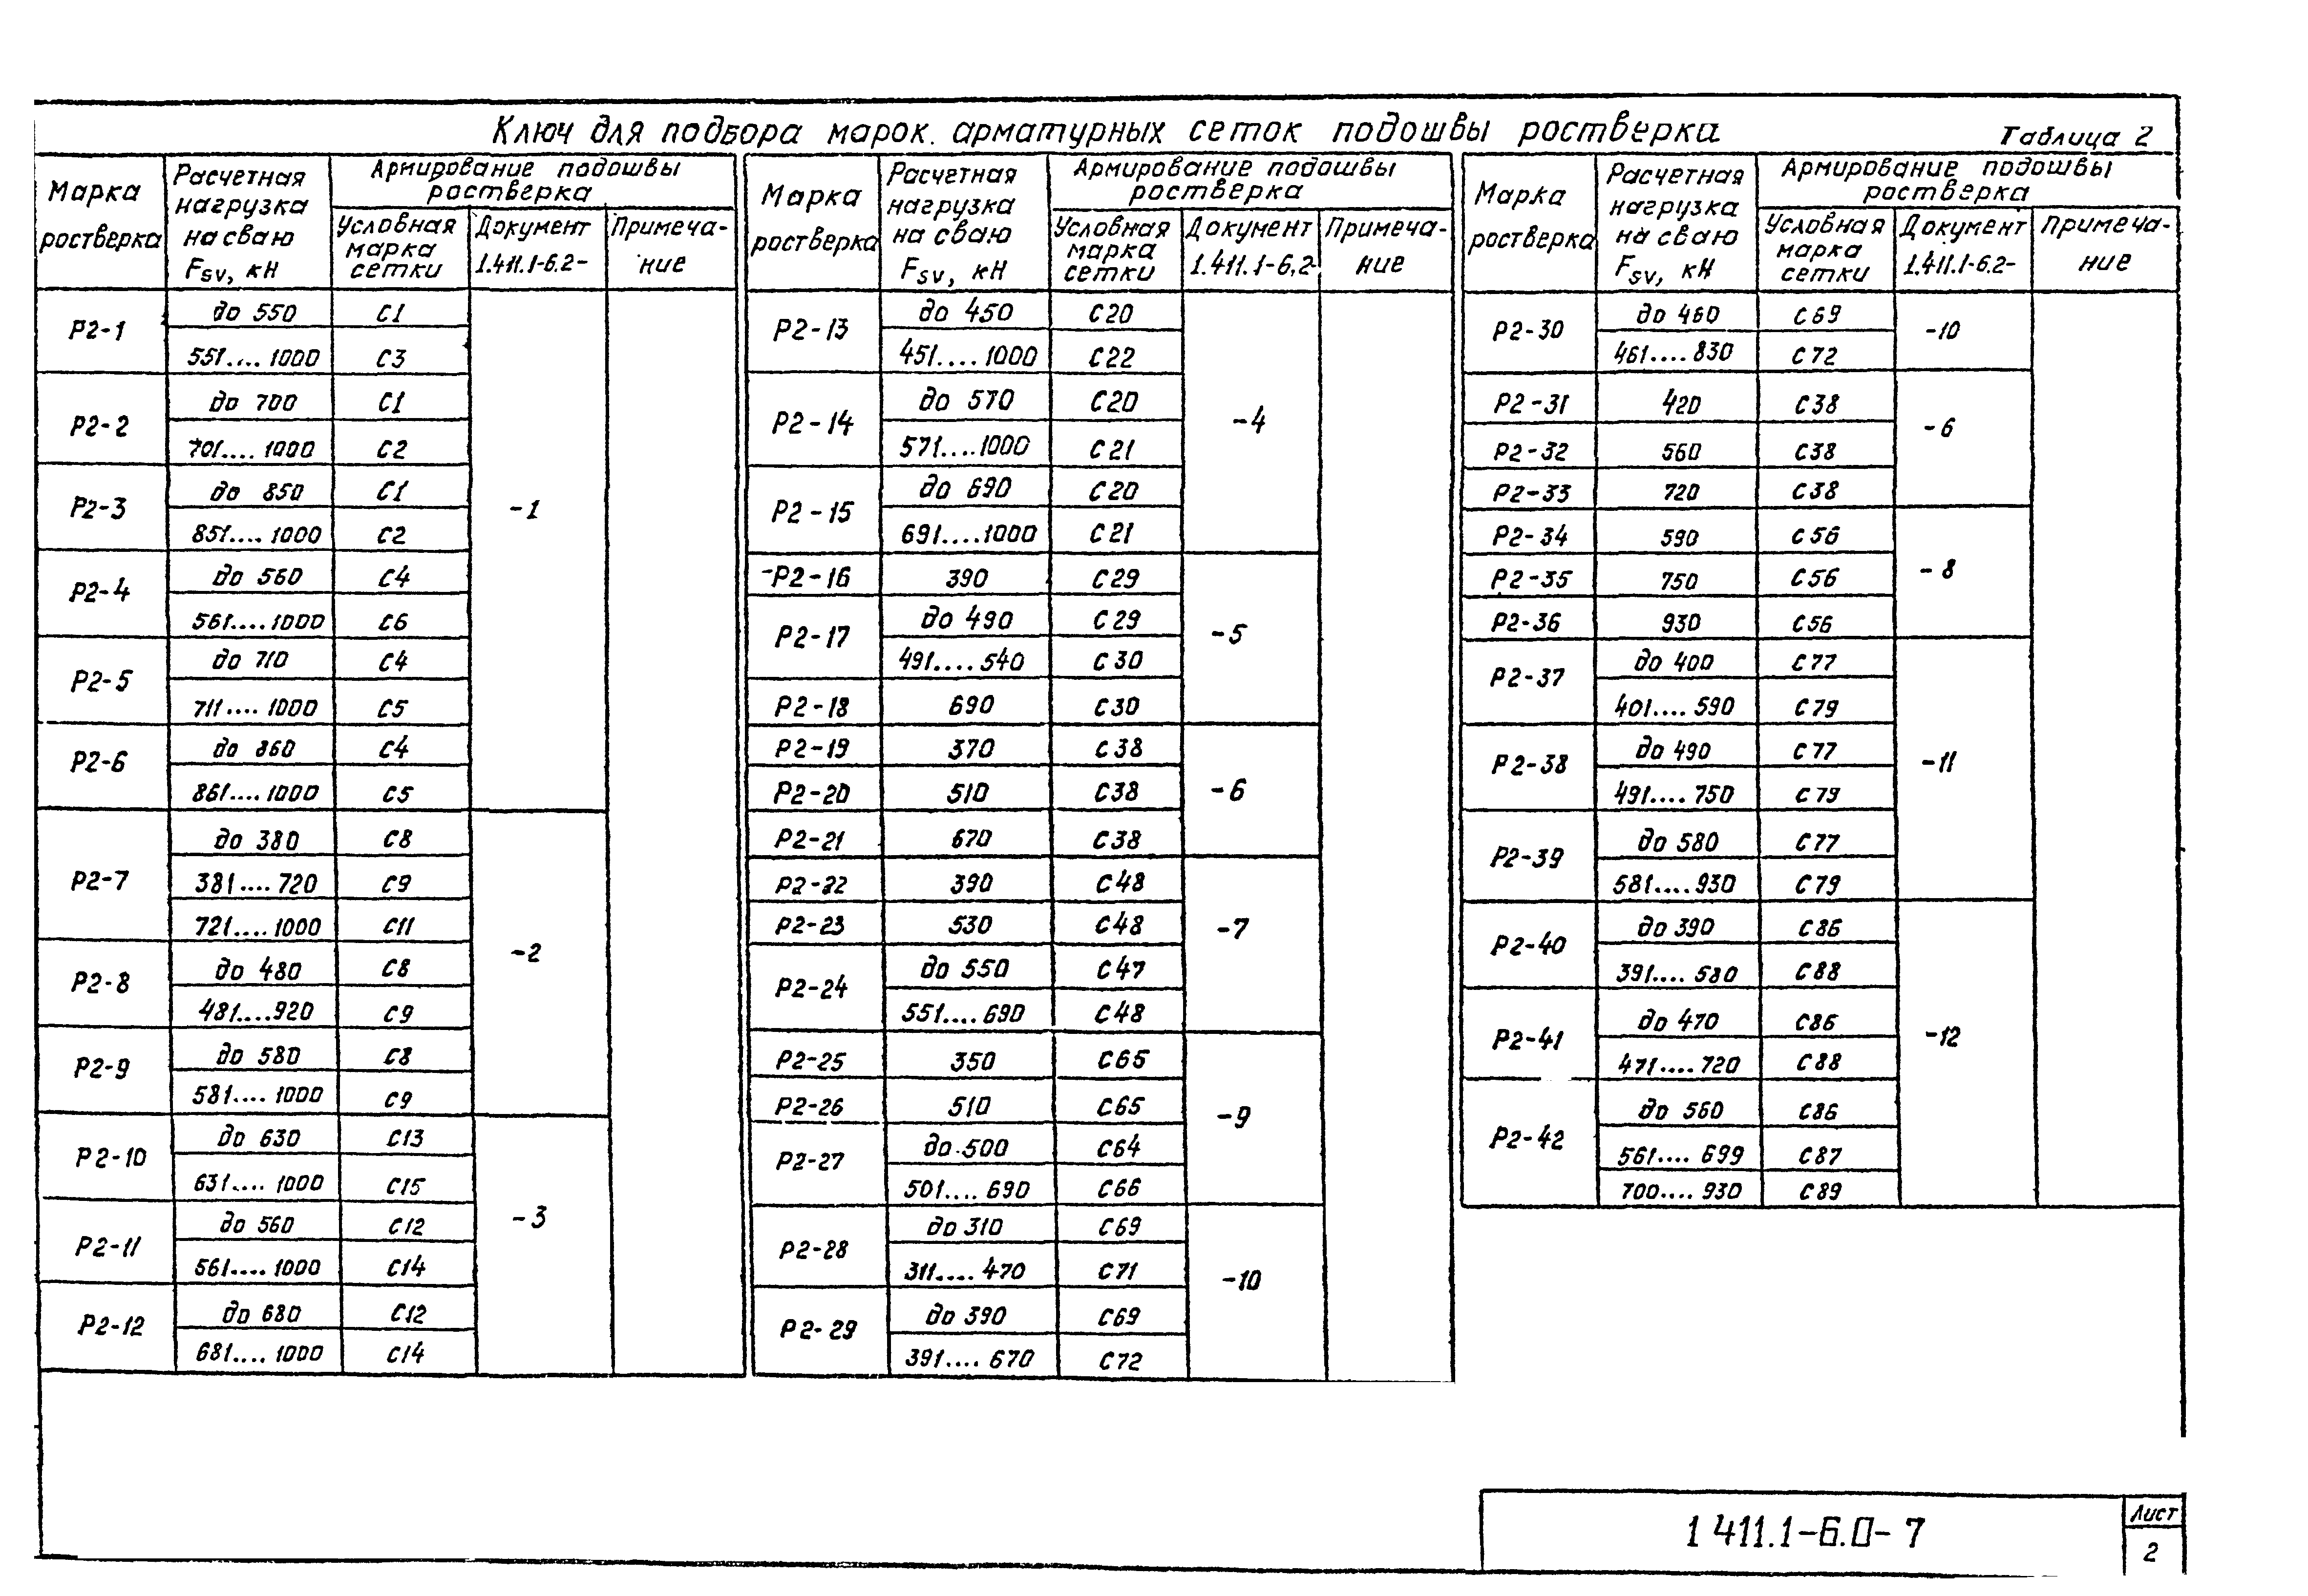 Ключ для подбора марок. арматурных сеток подошвы ростверка
Таблица 2
Марка ростверка
Расчетная нагрузка на сваю Fsv, кН
Армирование подошвы ростверка
Условная марка сетки
Документ 1.411.1-6.2-
Примеча-ние
Р2-1 до 550 С1 -1
551.... 1000 С3
Р2-2 до 700 С1
701.... 1000 С2
Р2-3 до 850 С1
851.... 1000 С2
Р2-4 до 560 С4
561.... 1000 С6
Р2-5 до 710 С4
711.... 1000 С5
Р2-6 до 860 С4
861.... 1000 С5
Р2-7 до 380 С8 -2
381.... 720 С9
721.... 1000 С11
Р2-8 до 480 С8
481....920 С9
Р2-9 до 580 С8
581.... 1000 С9
Р2-10 до 630 С13 -3
631.... 1000 С15
Р2-11 до 560 С12
561.... 1000 С14
Р2-12 до 680 С12
681.... 1000 С14
Марка ростверка
Расчетная нагрузка на сваю Fsv, кН
Армирование подошвы ростверка
Условная марка сетки
Документ 1.411.1-6.2-
Примеча-ние
Р2-13 до 450 С20 -4
451.... 1000 С22
Р2-14 до 570 С20
571....1000 С21
Р2-15 до 690 С20
691....1000 С21
Р2-16 390 С29 -5
Р2-17 до 490 С29
491.... 540 С30
Р2-18 690 С30
Р2-19 370 С38 -6
Р2-20 510 С38
Р2-21 670 С38
Р2-22 390 С48 -7
Р2-23 530 С48
Р2-24 до 550 С47
551.... 690 С48
Р2-25 350 С65 -9
Р2-26 510 С65
Р2-27 до 500 С64
501.... 690 С66
Р2-28 до 310 С69 -10
311.... 470 С71
Р2-29 до 390 С69
391.... 670 С72
Марка ростверка
Расчетная нагрузка на сваю Fsv, кН
Армирование подошвы ростверка
Условная марка сетки
Документ 1.411.1-6.2-
Примеча-ние
Р2-30 до 460 С69 -10
461.... 830 С72
Р2-31 420 С38 -6
Р2-32 560 С38
Р2-33 720 С38
Р2-34 590 С56 -8
Р2-35 750 С56
Р2-36 930 С56
Р2-37 до 400 С77 -11
401.... 590 С79
Р2-38 до 490 С77
491.... 750 С79
Р2-39 до 580 С77
581.... 930 С79
Р2-40 до 390 С86 -12
391.... 580 С88
Р2-41 до 470 С86
471.... 720 С88
Р2-42 до 560 С86
561.... 699 С87
700.... 930 С89
1 411.1-6.0-7
Лист
2